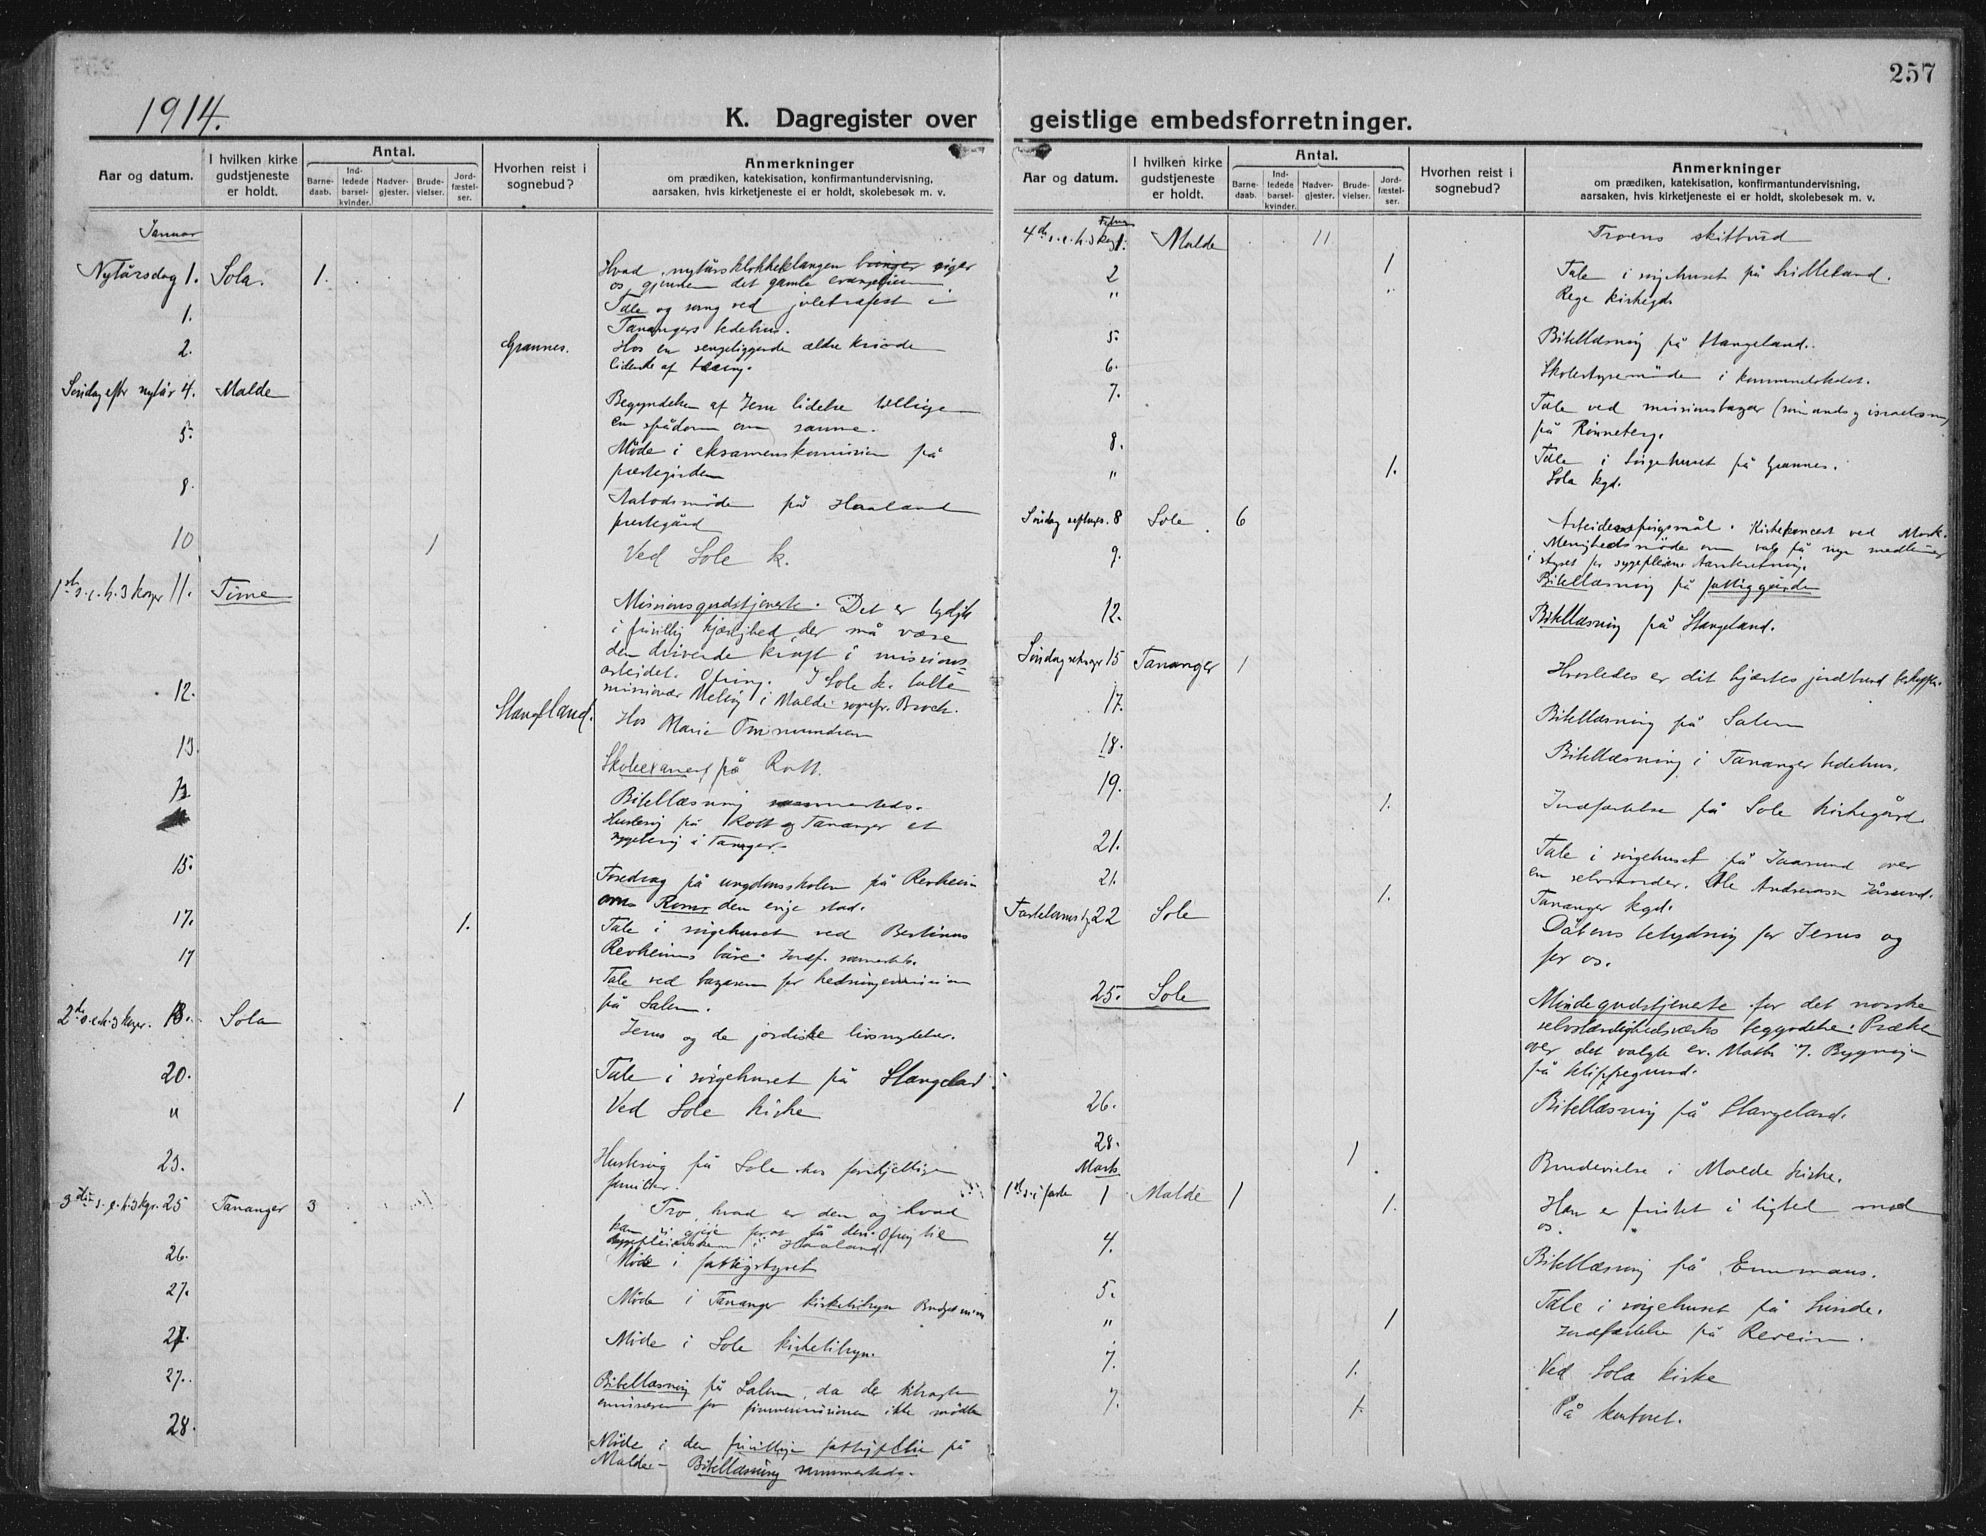 257
1914.
K. Dagregister over
geistlige embedsforretninger.
Aar og datum.
I hvilken kirke gudstjeneste er holdt.
Antal.
Barne-daab.
Ind-ledede barsel-kvinder.
Nadver-gjester.
Brude-vielser.
Jord-fæstel-ser.
Hvorhen reist i sognebud?
Anmerkninger
om prædiken, katekisation, konfirmantundervisning,
aarsaken, hvis kirketjeneste ei er holdt, skolebesøk m. v.
Januar
Nytårsdag 1. Sola. 1. Hvad nytårsklokkeklangen bringer siger
os, det gamle evangelium
1. Tale og sang ved juletræfest i
Tanangers bedehus.
2. Grannes. Hos en sengeliggende ældre kvinde
lidende af tæring.
Søndag efter nytår 4. Malde Begyndelsen af Jesu lidelse tillige
en spådom om samme.
5. Møde i eksamenskommision på
prestegården
8. Møde på Haaland
prestegård
10 1 Ved Sole k.
1ste s. e. h. 3 konger 11. Time Missionsgudstjeneste. Det er
i frivillig kjærlighed, der må være
den drivende kraft i missions=
arbeidet. Ofring. I Sole k. talte
missionær Meling i Malde sognepr. Broch.
12. Stangeland. Hos Marie Ommundsen
13. Skoleexamen på Rott.
Bibellæsning sammesteds.
Husbesøg på Rott og Tananger et
sygebesøg i Tananger.
15. Foredrag på ungdomsskolen på Revheim
om Rom, den evige stad.
17. 1. Tale i sørgehuset ved Bertinus
Revheims båre. Jordf. sammesteds.
17 Tale ved bazaren for hedningemissionen
på Salem.
2den s. e. h. 3 konger. 18. Sola Jesus og de jordiske livsnydelser.
20. Tale i sørgehuset på Stangeland
" 1 Ved Sole kirke
23. Husbesøg på Sole hos forskjellige
familier.
3die s. e. h. 3 kgr. 25 Tananger 3 Tro, hvad er den og hvad
kan vi gjøre for at få den. Ofring til
sygepleiersken i Haaland
26. Møde i fattigstyret
27. Møde i Tananger kirketilsyn
27. Møde i Sole kirketilsyn
27. Bibellæsning på Salem, da den
emissæren for finnemissionen ikke mødte
28. Møde i den frivillige fattigpleie på
Malde - Bibellæsning sammesteds.
Aar og datum.
I hvilken kirke gudstjeneste er holdt.
Antal.
Barne-daab.
Ind-ledede barsel-kvinder.
Nadver-gjester.
Brude-vielser.
Jord-fæstel-ser.
Hvorhen reist i sognebud?
Anmerkninger
om prædiken, katekisation, konfirmantundervisning,
aarsaken, hvis kirketjeneste ei er holdt, skolebesøk m. v.
Februar
4de s. e. h. 3 kong 1. Malde 11 Troens skilbud
2 1 Tale i sørgehuset på Lilleland.
" Rege kirkegd.
5. Bibellæsning på Stangeland.
6. Skolestyremøde i kommunelokalet.
7. Tale ved missionsbazar
på Rønneberg.
8. Tale i sørgehuset på Grannes.
" 1. Sola kgd.
Søndag septuags. 8 Sole 6 Arbeiderspørgsmål. Kirkekoncert ved
Menighedsmøde om valg på nye medlemmer
i styret for sygepleiens
9. Bibellæsning på fattiggården
12. Bibellæsning på Stangeland.
Søndag seksags 15 Tananger 1 Hvorledes er dit hjertes jordbund beskaffen.
17. Bibellæsning på Salem
18. Bibellæsning i Tananger bedehus.
19. 1. Jordfæstelse på Sole kirkegård.
21. Tale i sørgehuset på Jaasund over
en selvmorder. Ole Andreassen Jåsund.
21. 1. Tananger kgd.
Fastelavns s. 22 Sole Dåbens betydning for Jesus og
for os.
25. Sole Mindegudstjeneste for det norske
selvstændighedsverks begyndelse. Præken
over det valgte ev. Math. 7. Bygning
på klippegrund.
26. Bibellæsning på Stangeland.
28. 1 Brudevielse i Malde kirke.
Marts
1ste s. i faste 1 Malde 1 1. Han er fristet i lighed med
os.
4. Bibellæsning på Emmaus.
5. Tale i sørgehuset på Sunde.
" 1 Jordfæstelse på Reveim.
7. 1. Ved Sola kirke
7. 1. På kontoret.